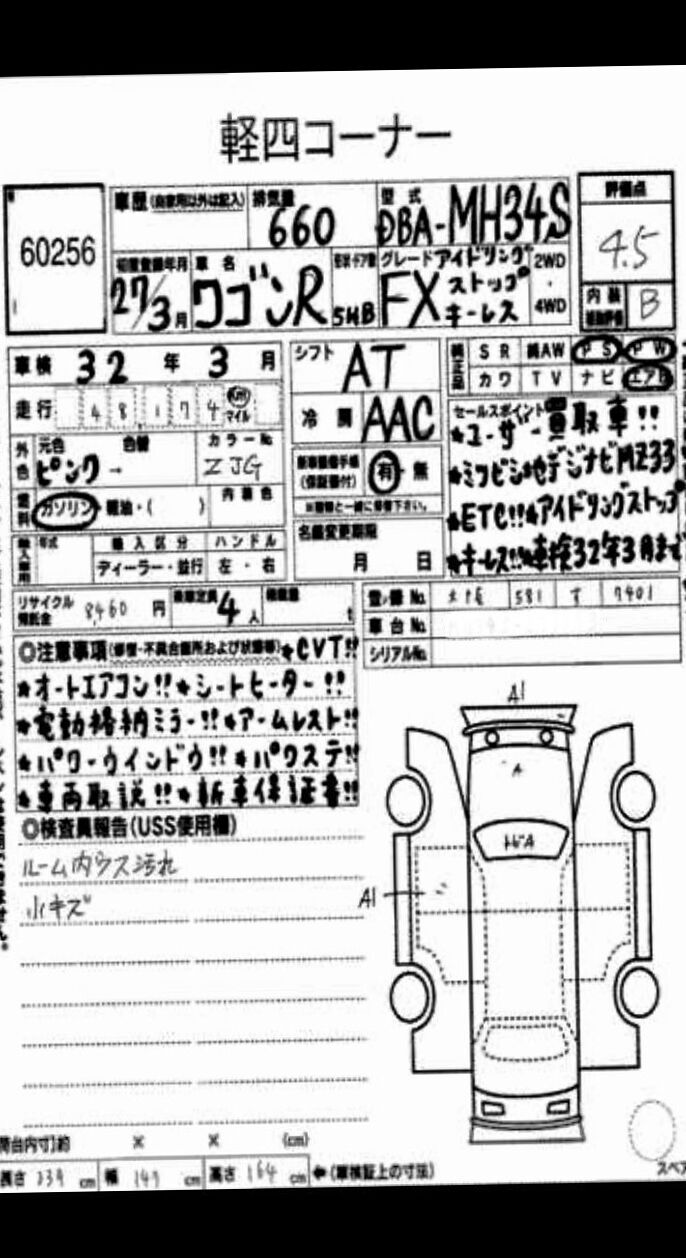 軽四コーナー
60256
車歴(自家用以外は記入)
排気量 660
型式 DBA-MH34S
評価点 4.5
初度登録年月 27/3月
車名 ワゴンR
形状・ドア数 5HB
グレード FX アイドリングストップ キーレス
2WD・4WD
内装 B
車検 32年3月
シフト AT
純正品 SR 純AW PS PW
カワ TV ナビ エアB
走行 48,174 Km マイル
冷房 AAC
外色 元色 ピンク→ 色替 カラーNo ZJG
新車整備手帳(保証書付) 有・無
セールスポイント ★ユーザー買取車!!
★ミツビシ地デジナビMZ33
★ETC!!★アイドリングストップ
★キーレス!!★車検32年3月まで
燃料 ガソリン・軽油・( ) 内装色
輸入車用 年式 輸入区分 ハンドル
ディーラー・並行 左・右
名義変更期限 月 日
リサイクル預託金 8,460円 乗車定員 4人 積載量 t
登録No. 581 7401
車台No.
シリアルNo.
◎注意事項(修復・不具合箇所および状態等)★CVT!!
★オートエアコン!!★シートヒーター!!
★電動格納ミラー!!★アームレスト!!
★パワーウインドウ!!★パワステ!!
★車両取説!!★新車保証書!!
◎検査員報告(USS使用欄)
ルーム内ウス汚れ
小キズ
A1
A
トビA
A1
荷台内寸)約 × × (cm)
長さ 339 cm 幅 147 cm 高さ 164 cm ←(車検証上の寸法)
スペア